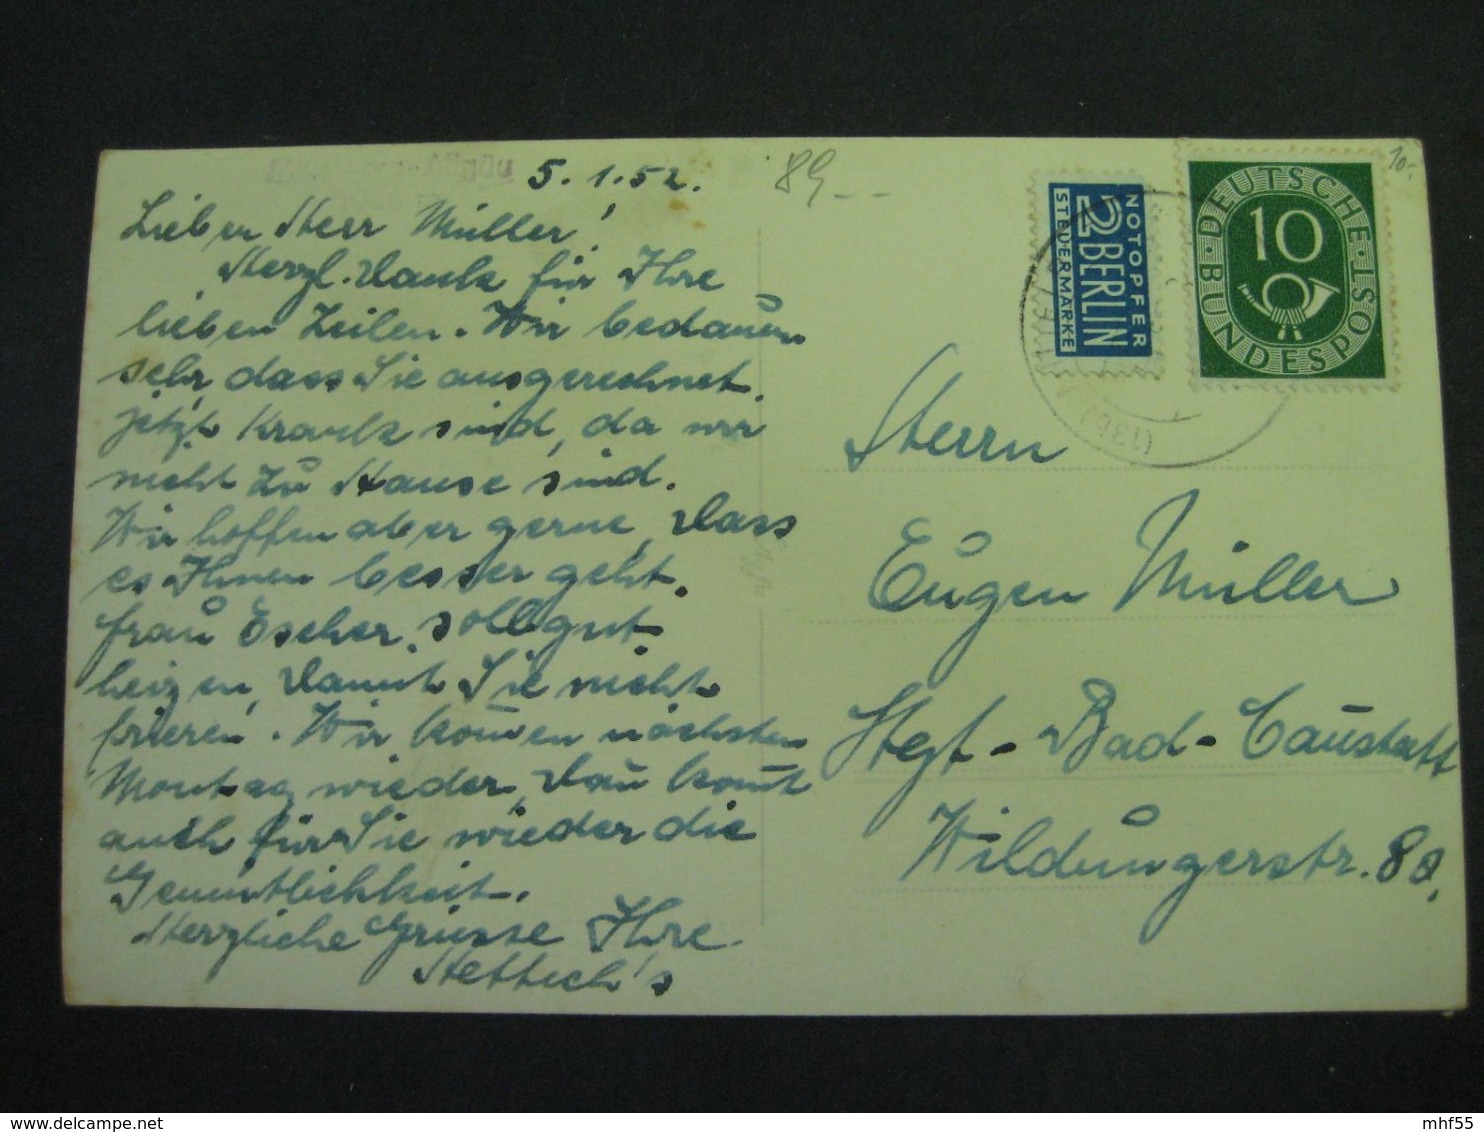 5.1.52.
Lieber Herr Müller!
Herzl. Dank für Ihre
lieben Zeilen. Wir bedauern
sehr, dass Sie ausgerechnet
jetzt krank sind, da wir
nicht zu Hause sind.
Wir hoffen aber gerne, dass
es Ihnen besser geht.
Frau Escher soll gut
heizen, damit Sie nicht
frieren. Wir kom̅en nächsten
Montag wieder, dan̅ kom̅t
auch für Sie wieder die
Gemütlichkeit.
Herzliche Grüsse Ihre
Hettich's
89 --
10.-
NOTOPFER
2 BERLIN
STEUERMARKE
DEUTSCHE
BUNDESPOST
10
(13b)
Herrn
Eugen Müller
Stgt-Bad-Cannstatt
Wildungerstr. 80.
delcampe.net
mhf55